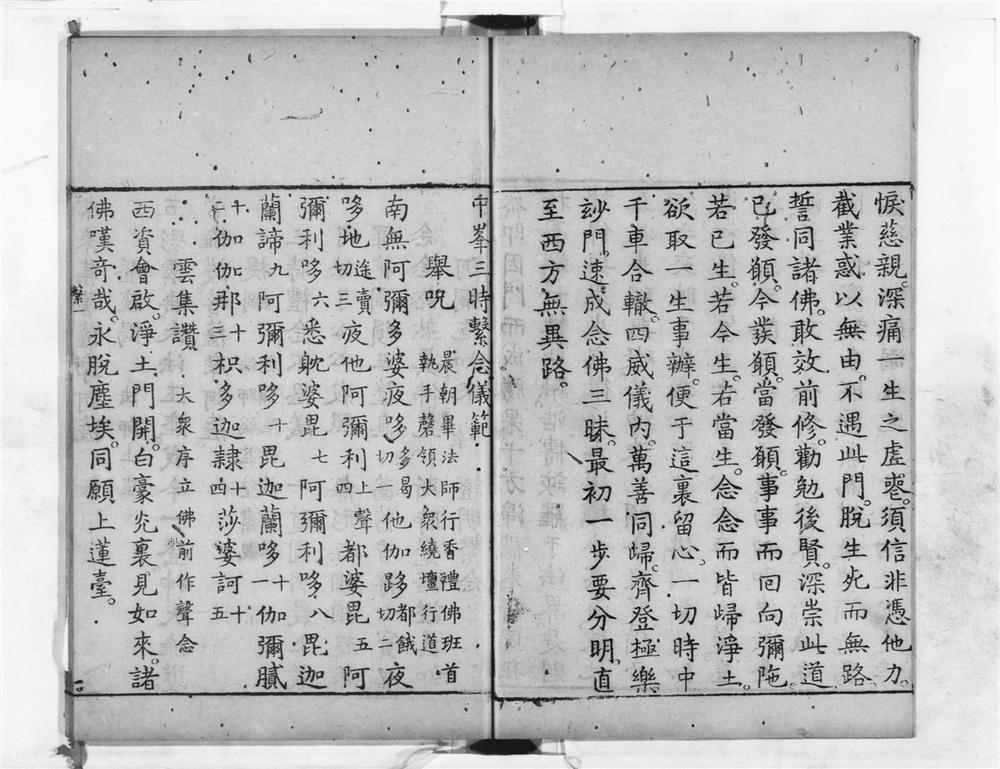 悞慈親。深痛一生之虛喪。須信非憑他力。
截業惑以無由。不遇此門。脫生死而無路
誓同諸佛。敢效前修。勸勉後賢。深崇此道
已發願。今發願。當發願。事事而回向彌陁。
若已生。若今生。若當生。念念而皆歸淨土。
欲取一生事辦。便于這裏留心。一切時中
千車合轍。四威儀內。萬善同歸。齊登極樂
玅門。速成念佛三昧。最初一步要分明。直
至西方無異路。
中峯三時繫念儀範
舉呪 晨朝畢法師行香禮佛班首
執手磬領大衆繞壇行道
南無阿彌多婆夜哆 多曷切 他伽跢 都餓切二 夜
哆地 途賣切三 夜他阿彌利 上聲四 都婆毘 五 阿
彌利哆 六 悉躭婆毘 七 阿彌利哆 八 毘迦
蘭諦 九 阿彌利哆 十 毘迦蘭哆 十一 伽彌膩
十二 伽伽那 十三 枳多迦隸 十四 莎婆訶 十五
雲集讚 大衆序立佛前作聲念
西資會啟。淨土門開。白豪光裏見如來。諸
佛嘆奇哉。永脫塵埃。同願上蓮臺。
繫一